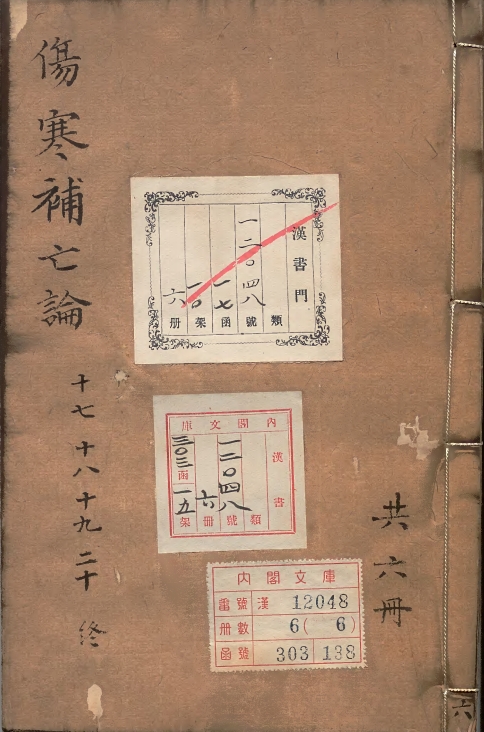 傷寒補亡論
十七 十八 十九 二十 終
共六冊
漢書門
類
一二〇四八號
一七函
一〇架
六册
內閣文庫
漢書
類
一二〇四八號
六冊
三〇三函
一五架
內閣文庫
番號 漢 12048
冊數 6( 6)
函號 303 138
六